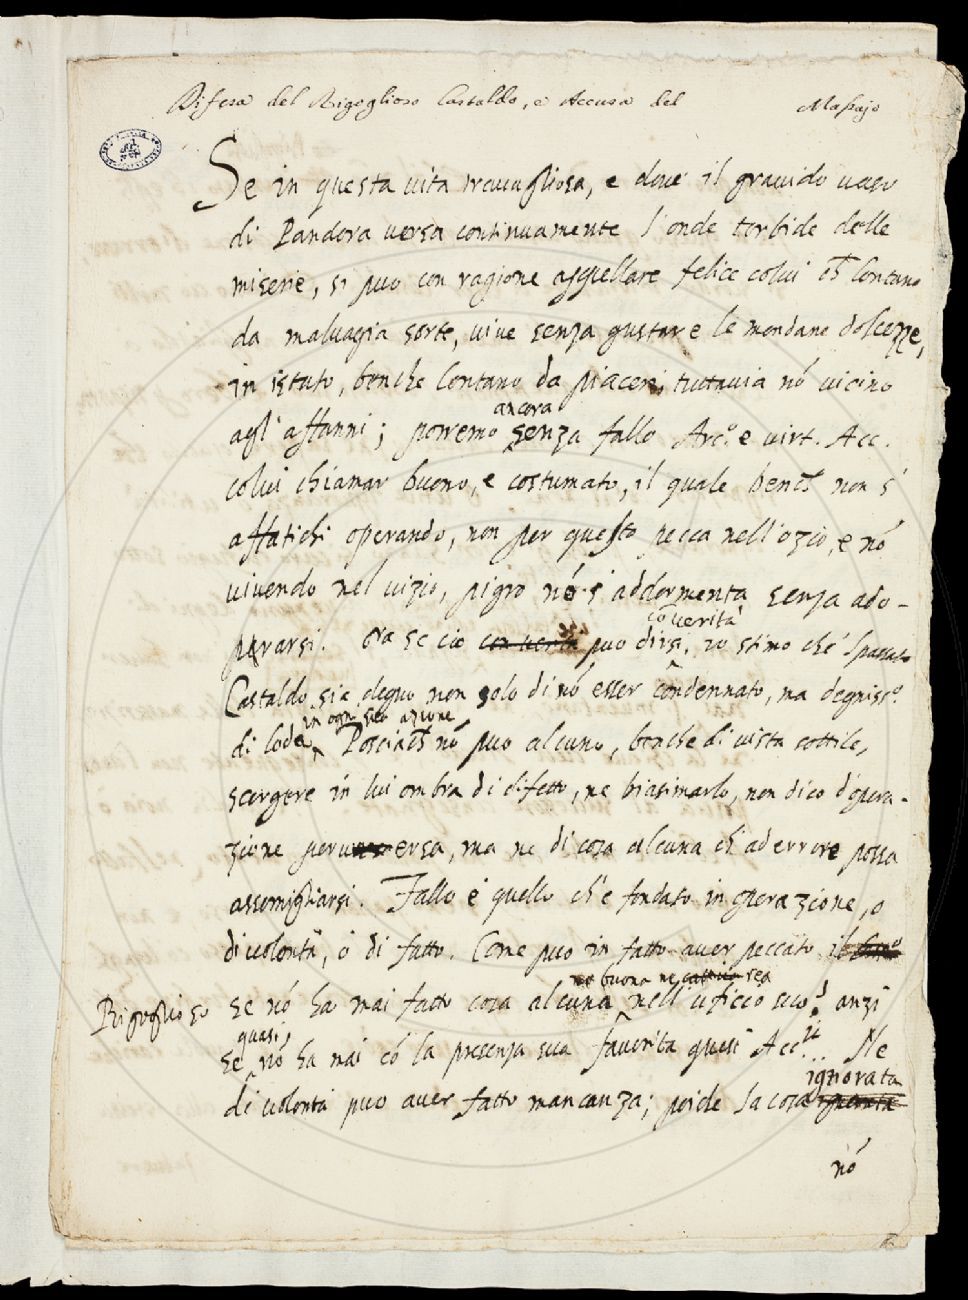 Difesa del Rigoglioso Castaldo, e Accusa del Massajo
Se in questa vita travagliosa, e dove il gravido vaso
di Pandora versa continuamente l'onde torbide delle
miserie, si puo con ragione appellare felice colui ch̃ lontano
da malvagia sorte, vive senza gustare le mondane dolcezze,
in istato, benche lontano da piaceri, tuttavia nõ vicino
agli affanni; potremo senza fallo Arc.º e virt. Acc.
ancora
colui chiamar buono, e costumato, il quale bench̃ non s'
affatichi operando, non per questo pecca nell'ozio, e nõ
vivendo nel vizio, pigro nõ s'addormenta senza ado-
perarsi. Ora se cio con verità puo dirsi, io stimo che lo passato
cõ verità
Castaldo sia degno non solo di nõ esser condennato, ma degniss.º
di lode in ogni sua azione Posciach̃ nõ puo alcuno, benche di vista sottile,
scorgere in lui ombra di difetto, ne biasimarlo, non dico d'opera-
zione perversa, ma ne di cosa alcuna ch̃ ad errore possa
assomigliarsi. Fallo è quello ch'è fondato in operazione, o
di volontà, o di fatto. Come puo in fatto aver peccato il
Rigoglioso se nõ ha mai fatto cosa alcuna nell'uficio suo! anzi
ne buona ne cattiva
se quasi nõ ha mai cõ la presenza sua favorita questi Acc.ci... Ne
di volontà puo aver fatto mancanza; poiche la cosa ignorata
nõ